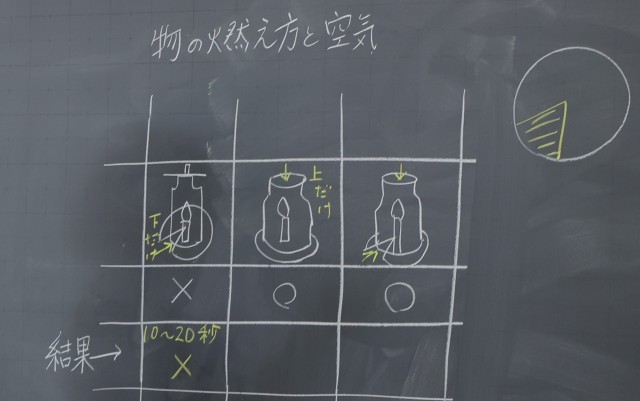 物の燃え方と空気
下だけ
上だけ
× ○ ○
10〜20秒
結果→ ×